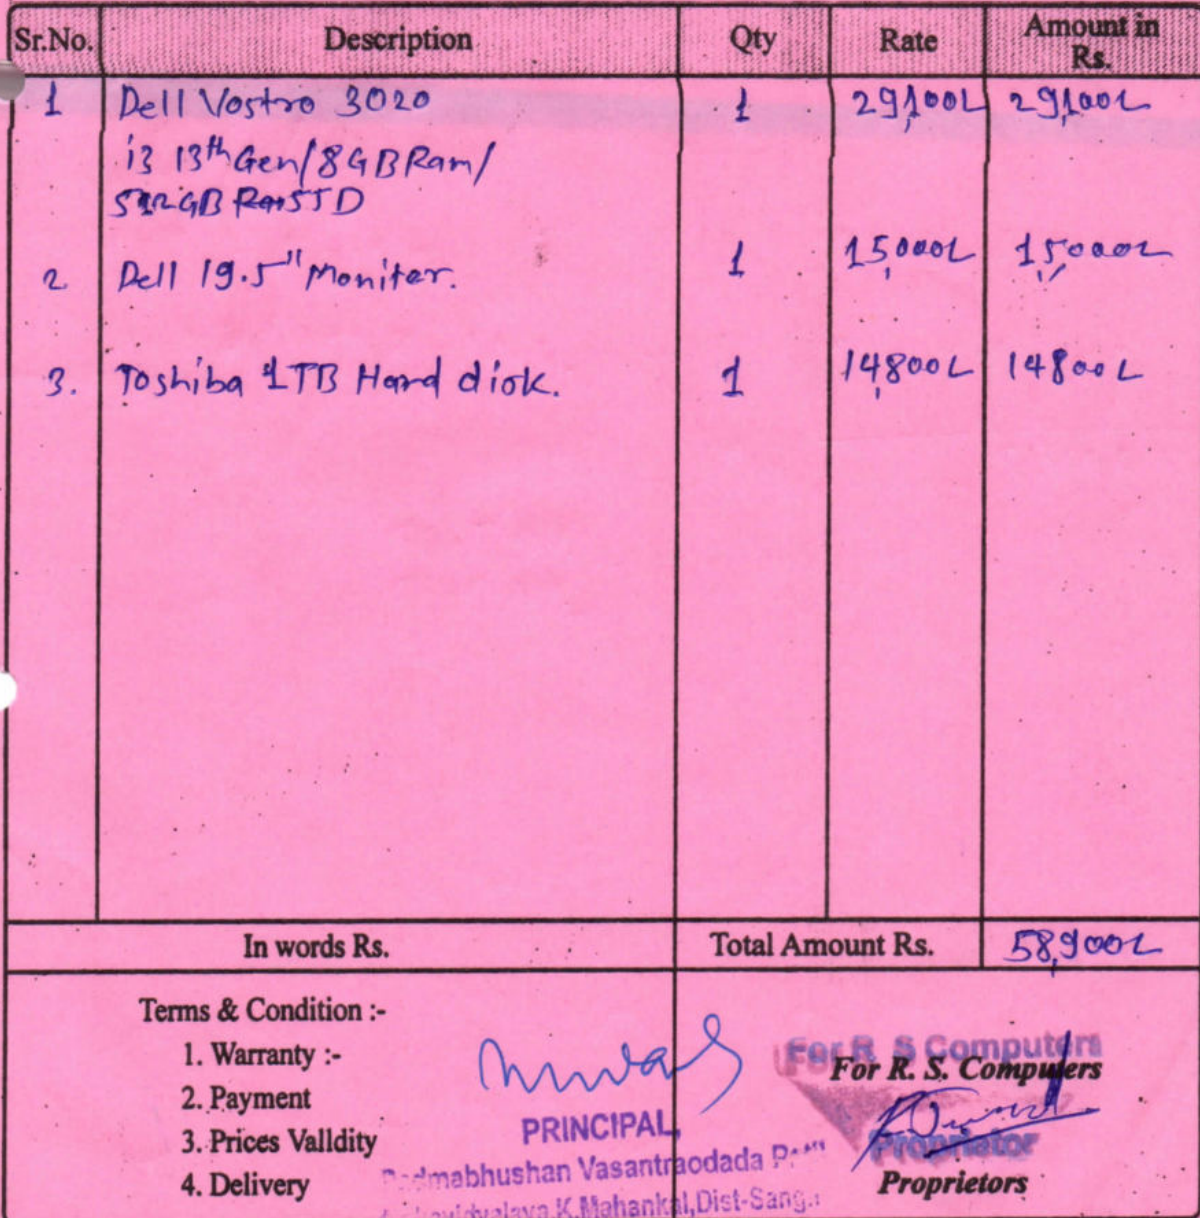 Sr.No. Description Qty Rate Amount in Rs.
1 Dell Vostro 3020 1 29,100/- 29,100/-
i3 13th Gen/8GB Ram/
512GB SSD
2 Dell 19.5" Moniter. 1 15,000/- 15,000/-
3. Toshiba 1TB Hard disk. 1 14,800/- 14800/-
In words Rs. Total Amount Rs. 58,900/-
Terms & Condition :-
1. Warranty :-
2. Payment
3. Prices Valldity
4. Delivery
PRINCIPAL,
Padmabhushan Vasantraodada Patil
K.Mahankal,Dist-Sang
For R S Computers
For R. S. Computers
Proprietor
Proprietors